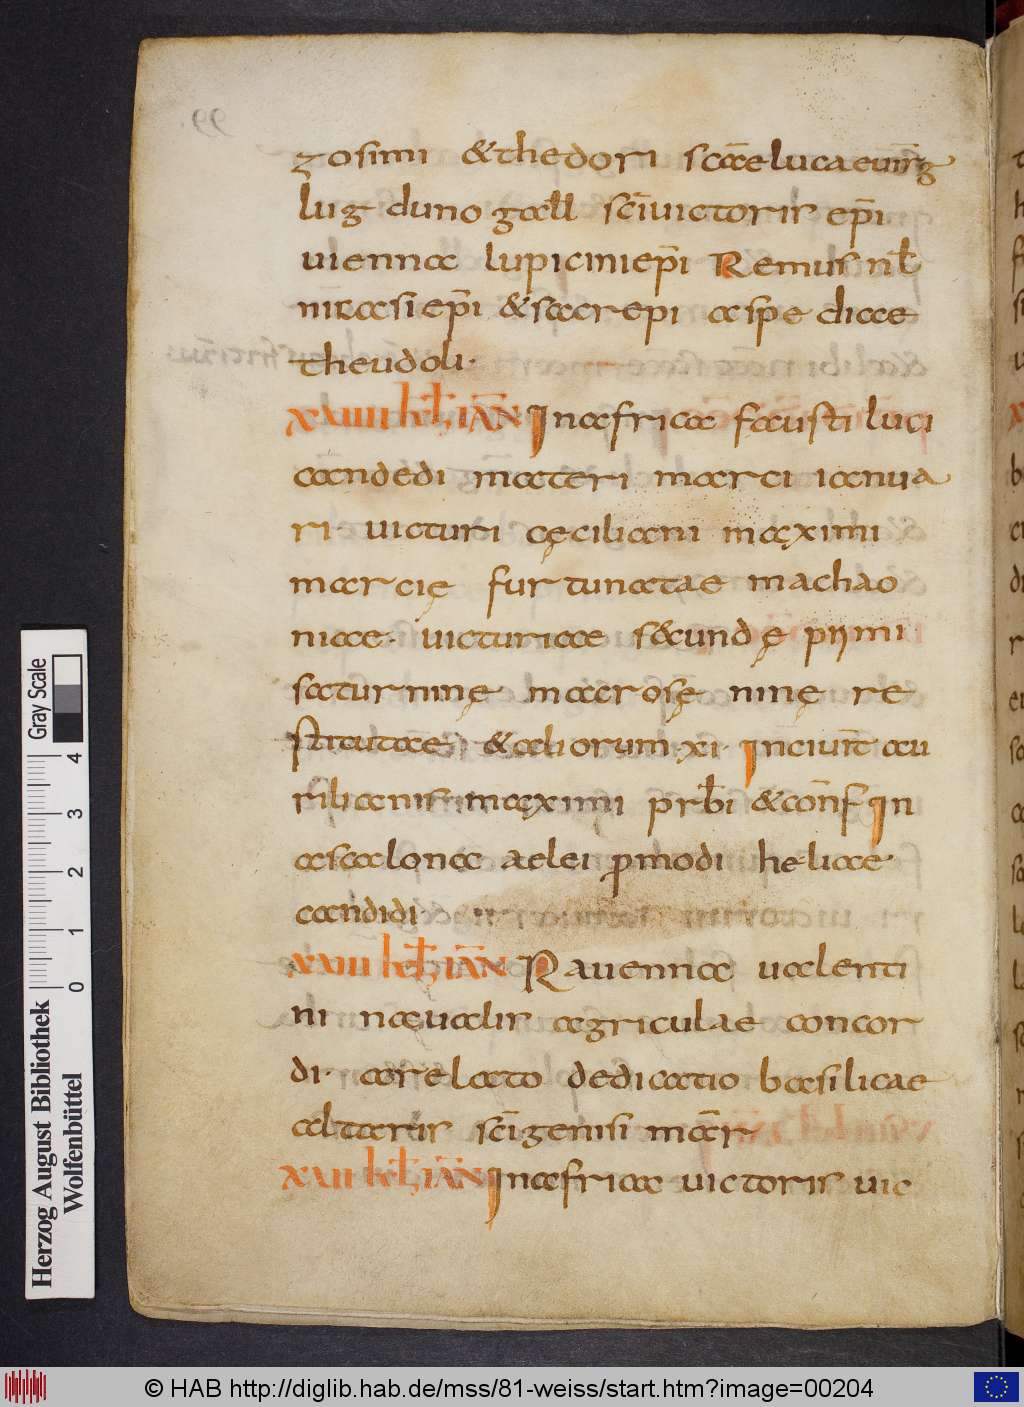 zosimi &thedori sc̄aelucaeuirg
lug duno gall sc̄iuictoris ep̄i
uienna lupiciniep̄i Remus nƀ
ep̄i &sacrepi aspe cliae
theudoli·
XVIIII kł IAN Inafrica fausti luci
candedi materi marci ianua
ri· uicturi cęciliani maximi
marcię furtunatae machao
niae· uicturiae s&cundę primi
saturninę macrosę ninę re
stitutae &aliorum·xi· Inciuit̄ au
rilianis maximi prƀi &conf̄ In
ascalona aelei promodi heliae·
candidi
XVIII kł IAN Rauenna ualenti
ni naeualis agriculae concor
di· arelato dedicatio basilicae
altaris sc̄igenisi mār
XVII kł IAN Inafrica uictoris uic
99.
Herzog August Bibliothek
Wolfenbüttel
Gray Scale
0 1 2 3 4
© HAB http://diglib.hab.de/mss/81-weiss/start.htm?image=00204